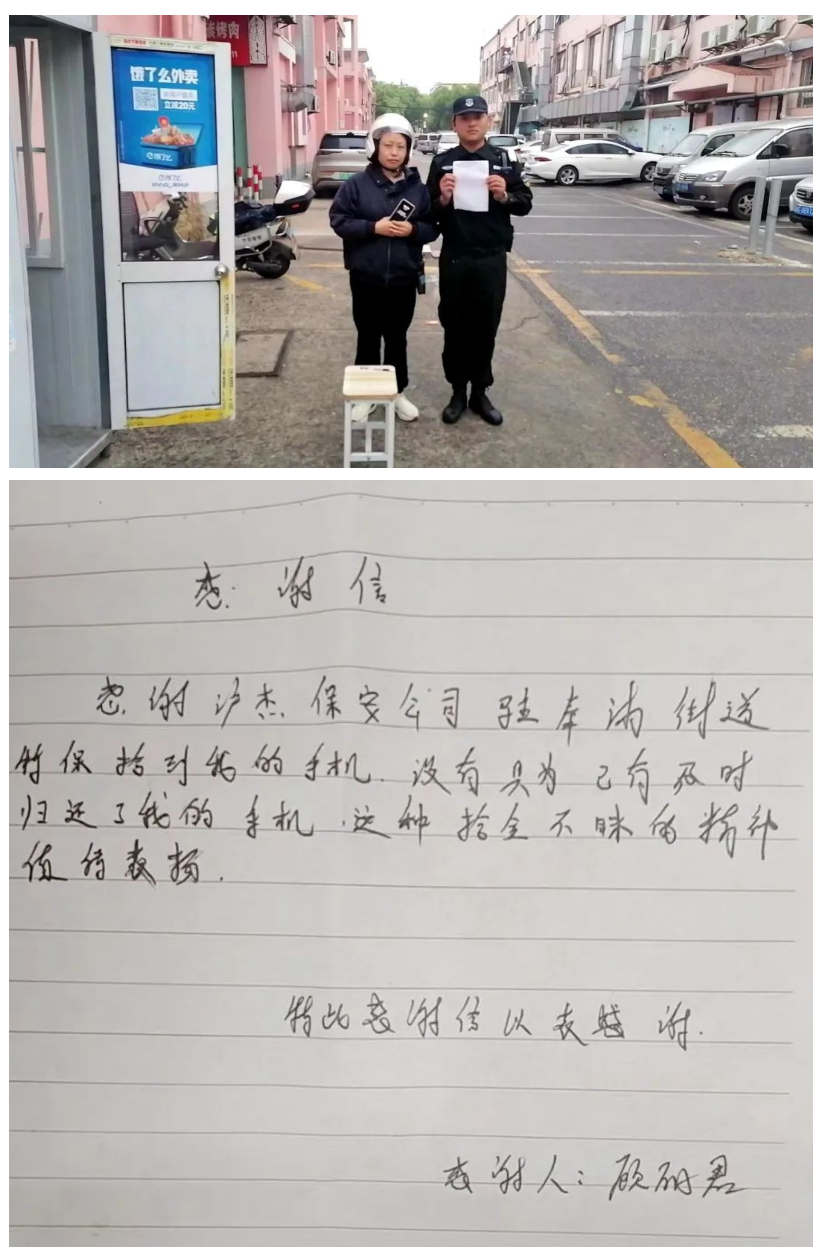 碳烤肉
饿了么外卖
立减20元
饿了么
感谢信
感谢沪杰保安公司驻奉浦街道
特保拾到我的手机.没有具为己有及时
归还了我的手机.这种拾金不昧的精神
值得表扬.
特此感谢信以表感谢.
感谢人:顾